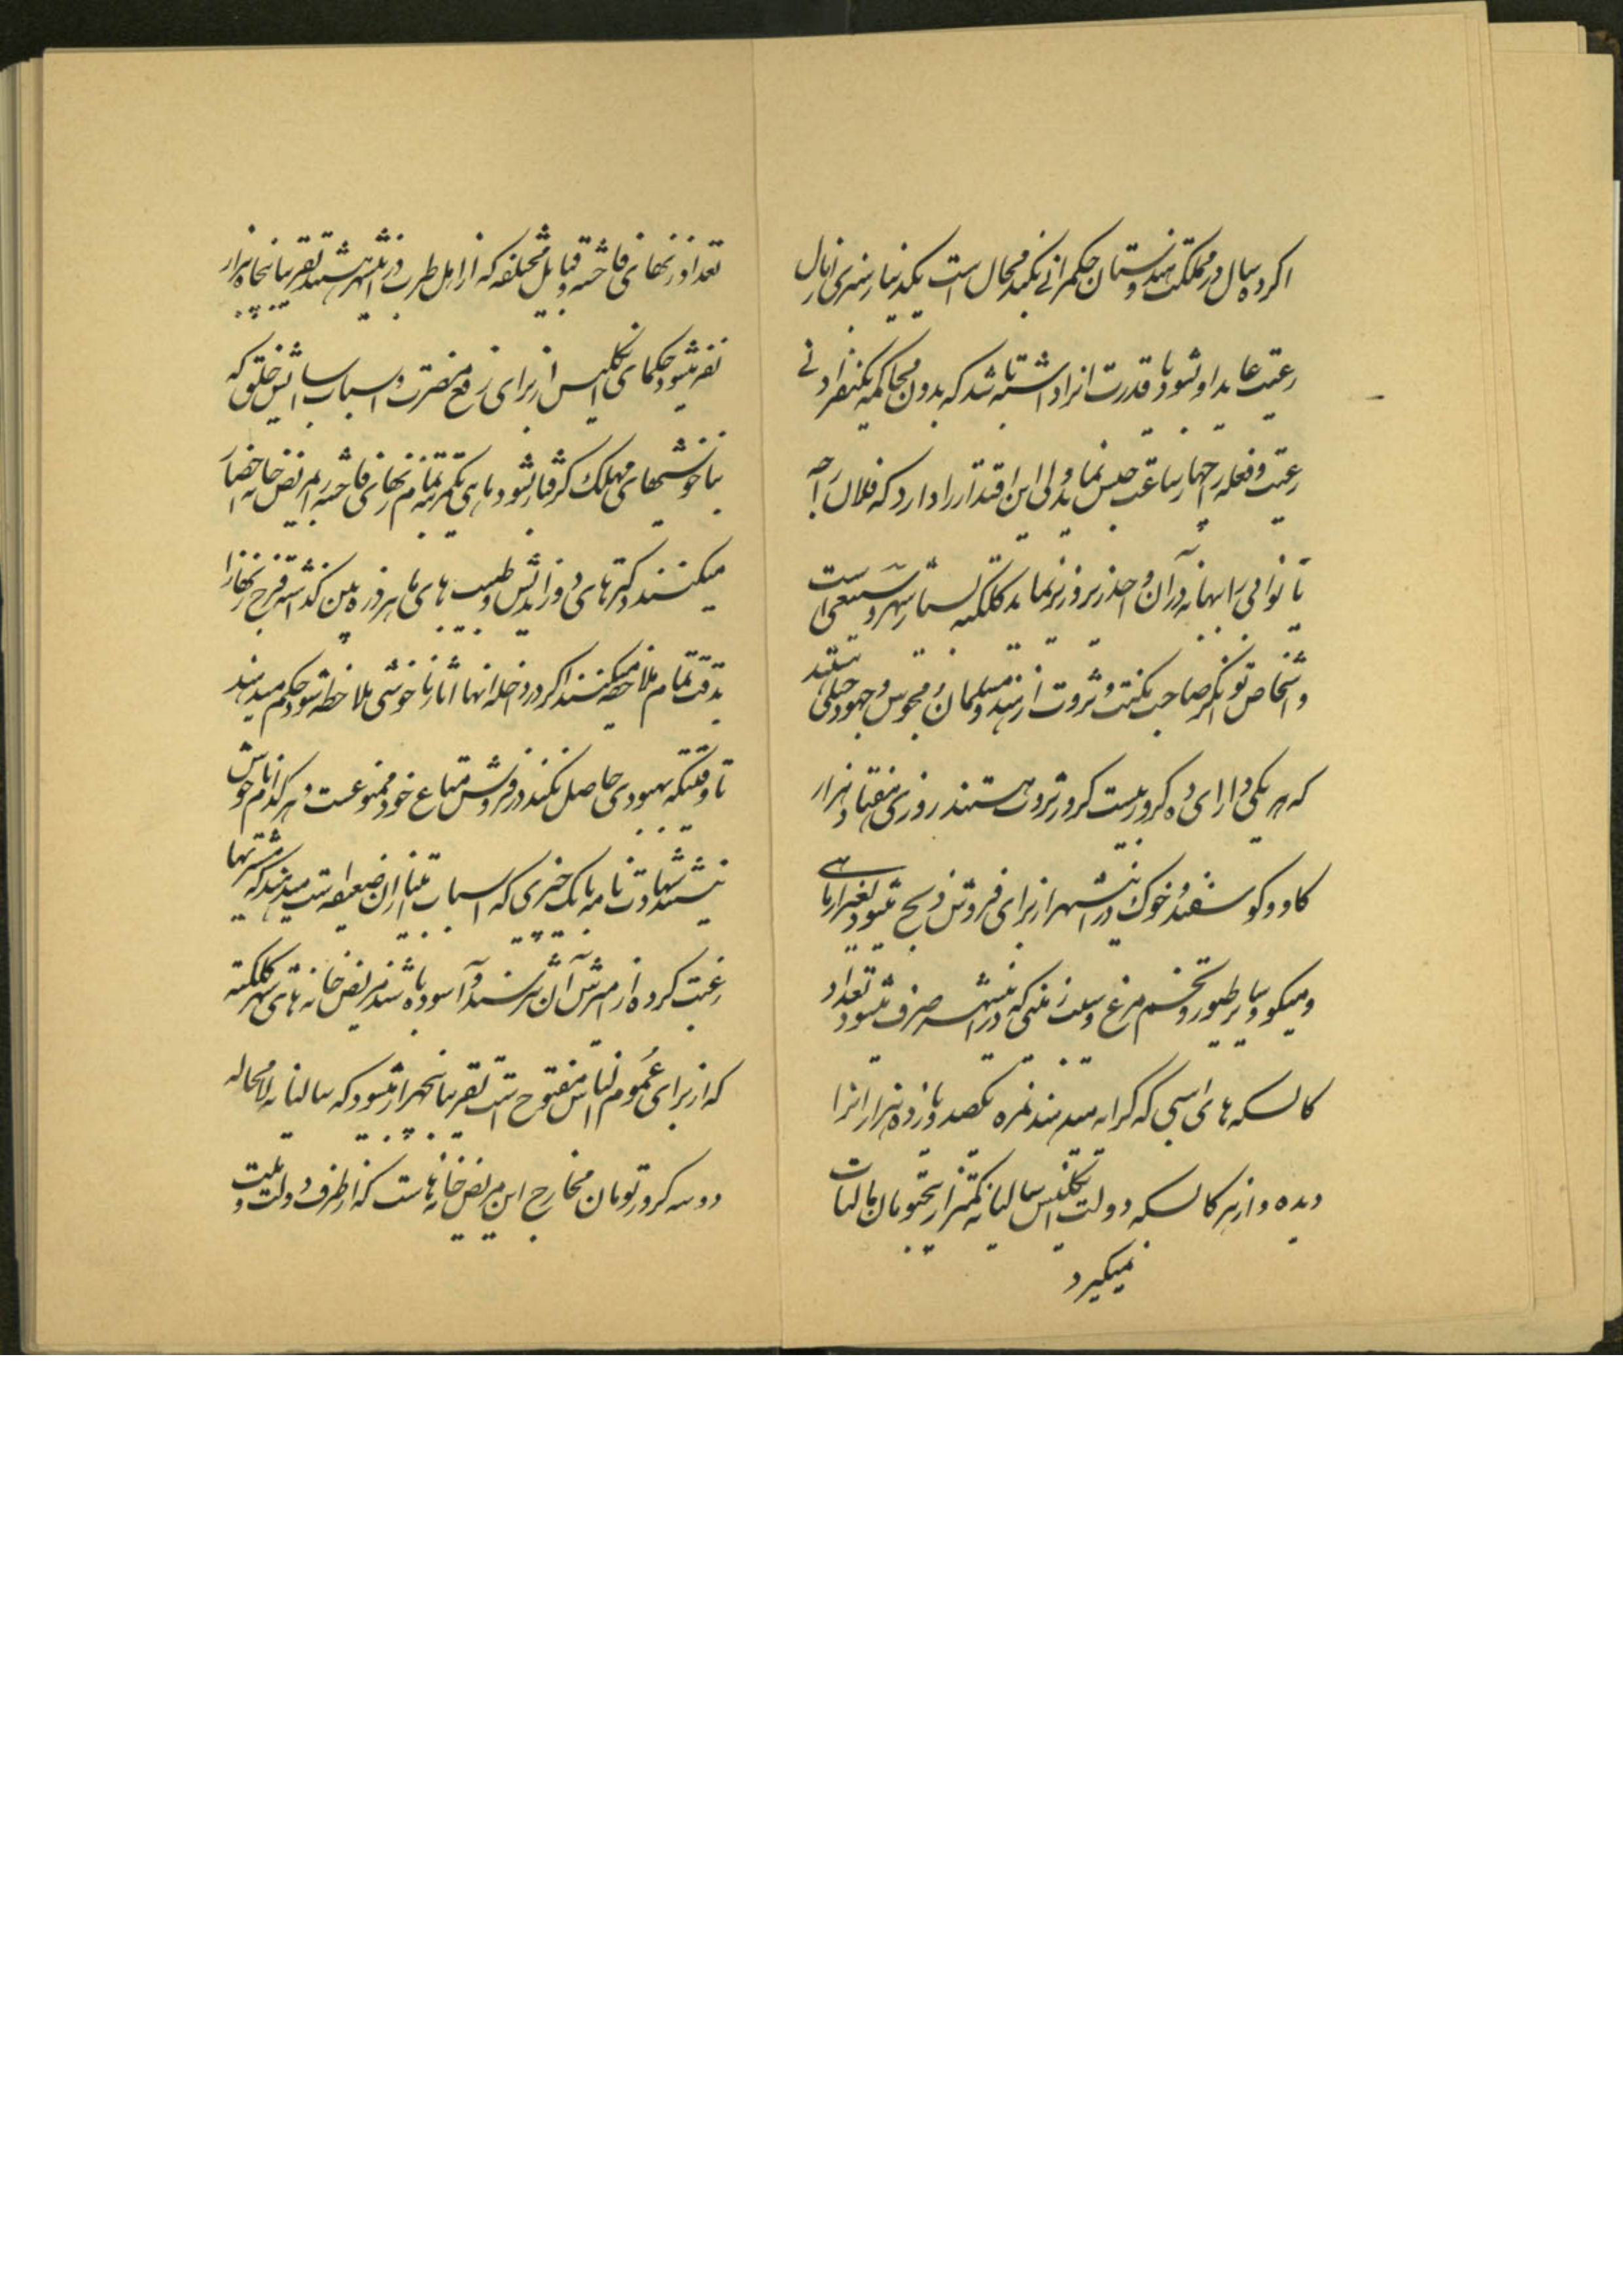 اکر ده سال در مملکت هندوستان حکمرانی بکند محال است یکدینار ضرری از مال
رعیت عاید او شود یا قدرت انرا داشته باشد که بدون محاکمه یکنفر ادنی
رعیت و فعله را چهار ساعت حبس نماید ولی این اقتدار را دارد که فلان راجه
یا نوابی را بهانه در آن واحد زیر و زبر نماید کلکته بسیار شهر وسیعی است
و اشخاص توانگر صاحب مکنت و ثروت از هنود و مسلمان و مجوس و جهود خیلی هستند
که هر یکی دارای ده کرور بیست کرور ثروت هستند روزی هفتاد هزار
کاو و کوسفند و خوک در اینشهر از برای فروش ذبح میشود بغیر از ماهی
و میکو و سایر طیور و تخم مرغ و سیب زمینی که در اینشهر صرف میشود تعداد
کالسکه های اسبی که کرایه میدهند نمره یکصد و یازده هزار انرا
دیده و از هر کالسکه دولت انکلیس سالیانه کمتر از پنجتومان مالیات
نمیکیرد
تعداد زنهای فاحشه و قبایل مختلفه که از اهل طرب در اینشهر هستند تقریبا پنجاه هزار
نفر میشود حکمای انکلیس از برای رفع مضرت و اسباب اسایش خلق که
بناخوشیهای مهلک کرفتار نشود ماهی یکمرتبه تمام زنهای فاحشه را بمریض خانه احضار
میکنند دکترهای و طبیب های ماهر ذره بین کذاشته فرج زنها را
بدقت تمام ملاحظه میکنند اکر در داخله انها اثار ناخوشی ملاحظه شود حکم میدهند
تا وقتیکه بهبودی حاصل نکند در فروش متاع خود ممنوعست و هر کدام ناخوش
نیستند شهادت نامه پاک چیزی که اسباب ان ضعیفه است میدهند که مشتریها
رغبت کرده از آن و آسوده باشند مریض خانه های شهر کلکته
که از برای عموم الناس مفتوح است تقریبا پنجهزار میشود که سالیانه لامحاله
دو سه کرور تومان مخارج این مریض خانه هاست که از طرف دولت و ملت